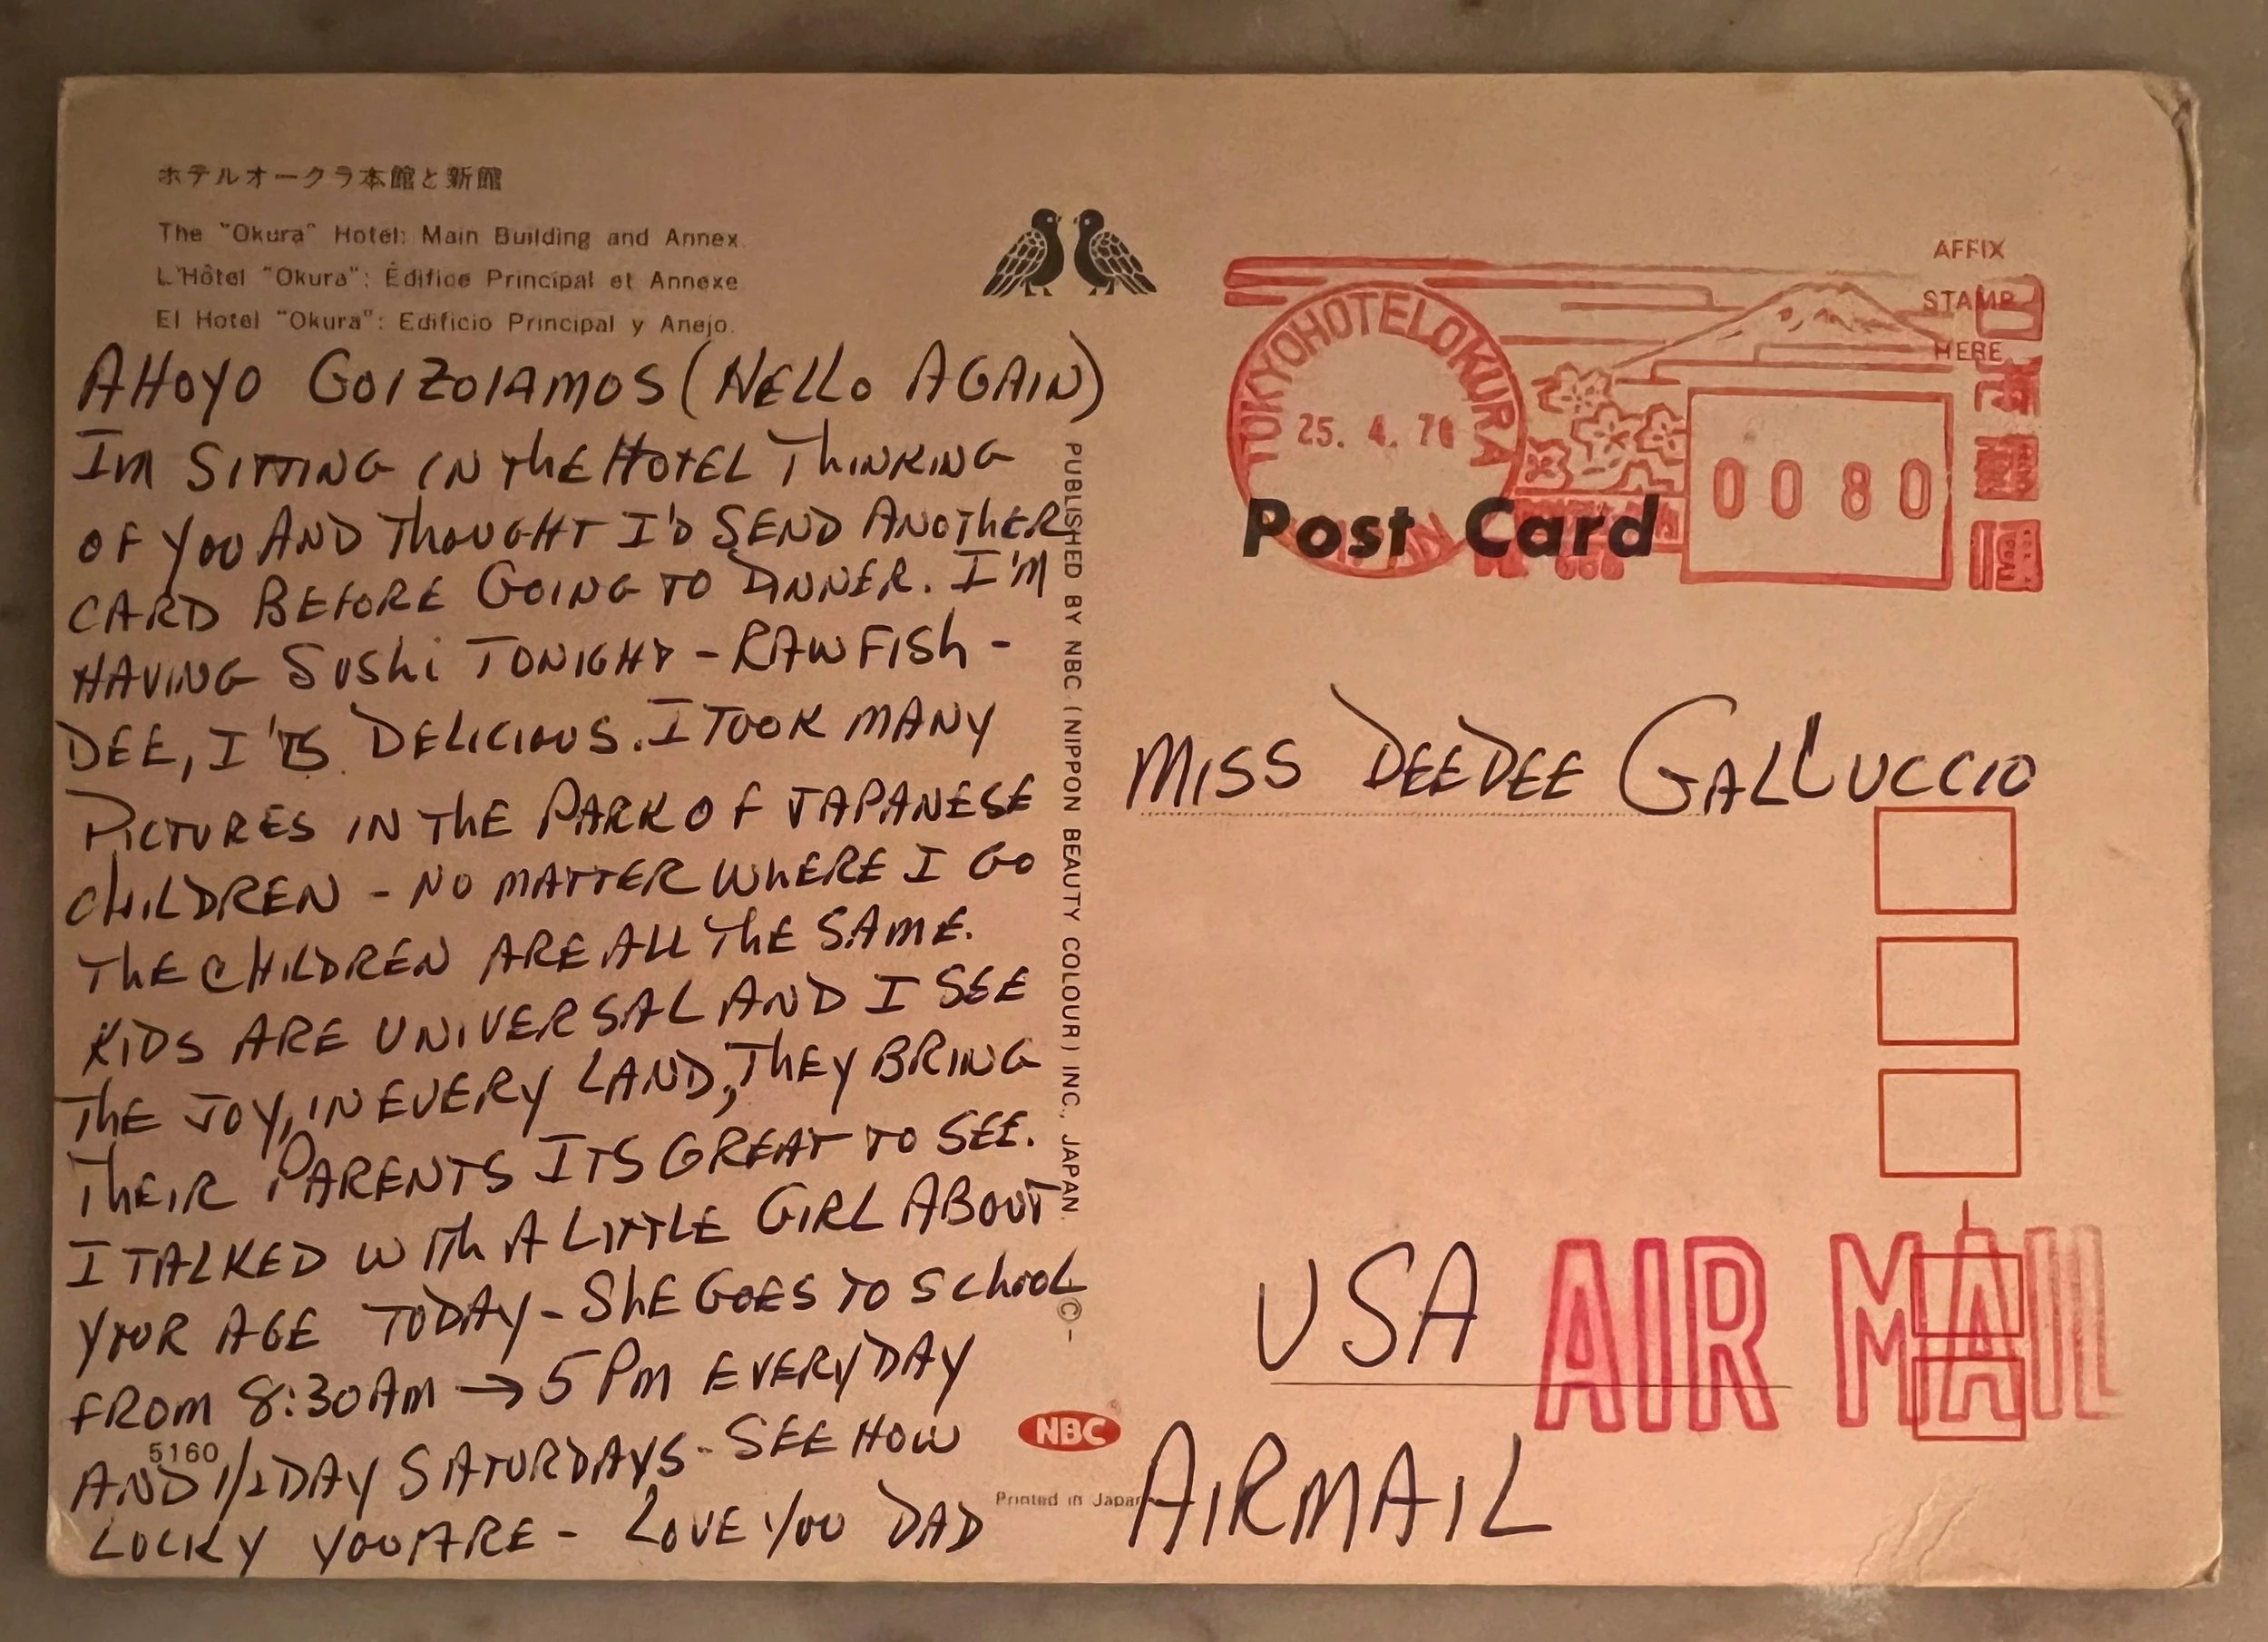 ホテルオークラ本館と新館
The "Okura" Hotel: Main Building and Annex.
L'Hôtel "Okura": Édifice Principal et Annexe
El Hotel "Okura": Edificio Principal y Anejo.
AHOYO GOIZOIAMOS (HELLO AGAIN)
IM SITTING IN THE HOTEL THINKING
OF YOU AND THOUGHT I'D SEND ANOTHER
CARD BEFORE GOING TO DINNER. I'M
HAVING SUSHI TONIGHT - RAW FISH -
DEE, I'TS DELICIOUS. I TOOK MANY
PICTURES IN THE PARK OF JAPANESE
CHILDREN - NO MATTER WHERE I GO
THE CHILDREN ARE ALL THE SAME.
KIDS ARE UNIVERSAL AND I SEE
THE JOY, IN EVERY LAND, THEY BRING
THEIR PARENTS ITS GREAT TO SEE.
I TALKED WITH A LITTLE GIRL ABOUT
YOUR AGE TODAY - SHE GOES TO SCHOOL
FROM 8:30AM → 5PM EVERYDAY
5160
AND 1/2 DAY SATURDAYS - SEE HOW
LUCKY YOU ARE - LOVE YOU DAD
PUBLISHED BY NBC (NIPPON BEAUTY COLOUR) INC., JAPAN. ©-
NBC
Printed in Japan
AFFIX
STAMP
HERE
TOKYO HOTEL OKURA
25. 4. 76
0080
Post Card
MISS DEEDEE GALLUCCIO
USA
AIR MAIL
AIRMAIL